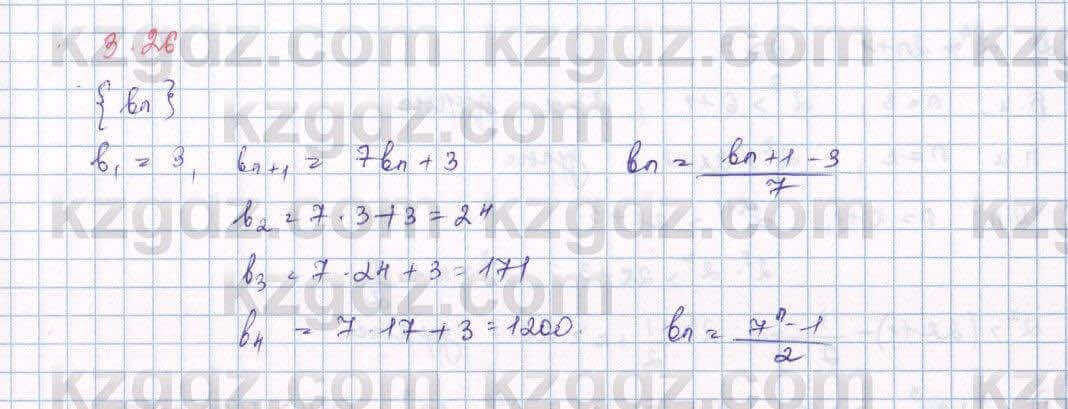 3.26
{bn}
b₁ = 3, bn+1 = 7bn + 3 bn = (bn+1 - 3)/7
b₂ = 7 · 3 + 3 = 24
b₃ = 7 · 24 + 3 = 171
b₄ = 7 · 17 + 3 = 1200. bn = (7ⁿ - 1)/2
kzgdz.com
kzgdz.com
kzgdz.com
kzgdz.com
kzgdz.com
kzgdz.com
kzgdz.com